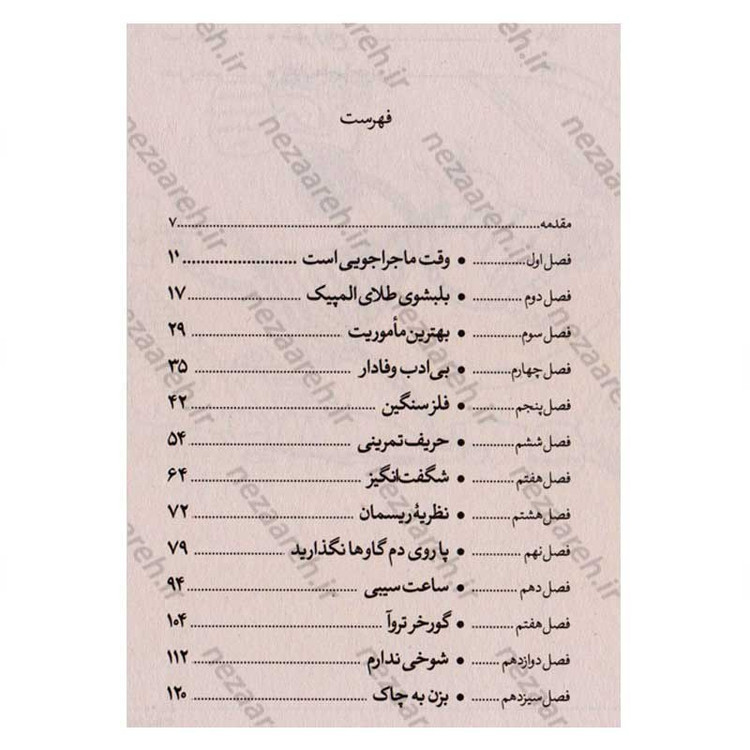 فهرست
مقدمه ........ ۷
فصل اول ........ • وقت ماجراجویی است ........ ۱۰
فصل دوم ........ • بلبشوی طلای المپیک ........ ۱۷
فصل سوم ........ • بهترین مأموریت ........ ۲۹
فصل چهارم ........ • بی‌ادب وفادار ........ ۳۵
فصل پنجم ........ • فلز سنگین ........ ۴۲
فصل ششم ........ • حریف تمرینی ........ ۵۴
فصل هفتم ........ • شگفت‌انگیز ........ ۶۴
فصل هشتم ........ • نظریهٔ ریسمان ........ ۷۲
فصل نهم ........ • پا روی دم گاوها نگذارید ........ ۷۹
فصل دهم ........ • ساعت سیبی ........ ۹۴
فصل هفتم ........ • گورخر تروآ ........ ۱۰۴
فصل دوازدهم ........ • شوخی ندارم ........ ۱۱۲
فصل سیزدهم ........ • بزن به چاک ........ ۱۲۰
nezaareh.ir